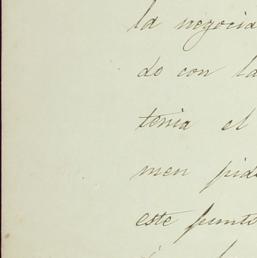 la negocia
do con la
tenia el
men pid
este punto